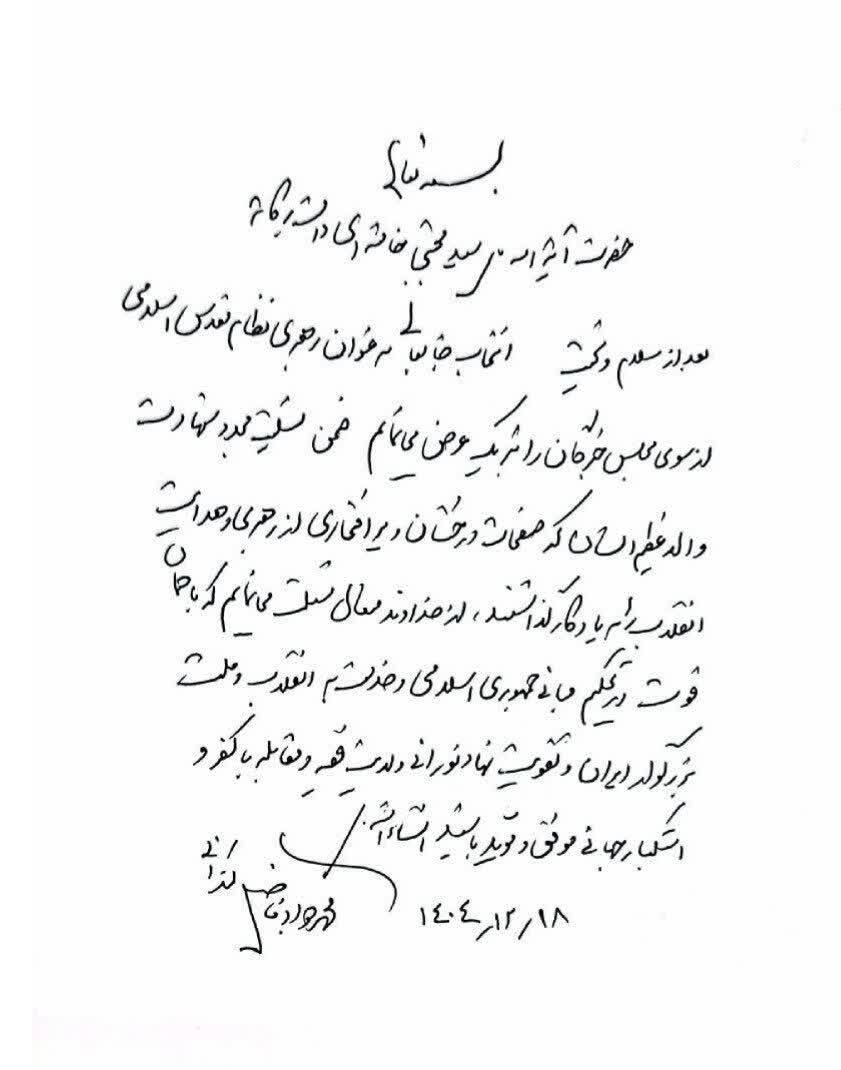 بسمه تعالی
حضرت آیة الله سید مجتبی خامنه‌ای دامت برکاته
بعد از سلام و تحیت انتخاب جنابعالی به عنوان رهبری نظام مقدس اسلامی
از سوی مجلس خبرگان را تبریک عرض می‌نمایم ضمن تسلیت مجدد شهادت
والد عظیم الشأن که صفحات درخشان و پر افتخاری از رهبری و هدایت
انقلاب را به یادگار گذاشتند، از خداوند متعال مسئلت می‌نمایم که با
قوت در تحکیم مبانی جمهوری اسلامی و خدمت به انقلاب و ملت
بزرگوار ایران و تقویت نهاد نورانی ولایت فقیه و مقابله با کفر و
استکبار جهانی موفق و مؤید باشید انشاءالله.
۱۴۰۴/۱۲/۱۸
محمد جواد فاضل لنکرانی